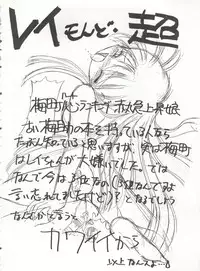 レイもんど・超
梅町心のランキング赤丸急上昇娘
あい梅町の本を持っている人なら
たぶん知っていると思いますが、実は梅町
はレイちゃんが大嫌いでした。では
なんで今は3位なの
言い忘れてましたけど)?となるでしょう
なんでかとなると
カワイイから
以上なんスよ…